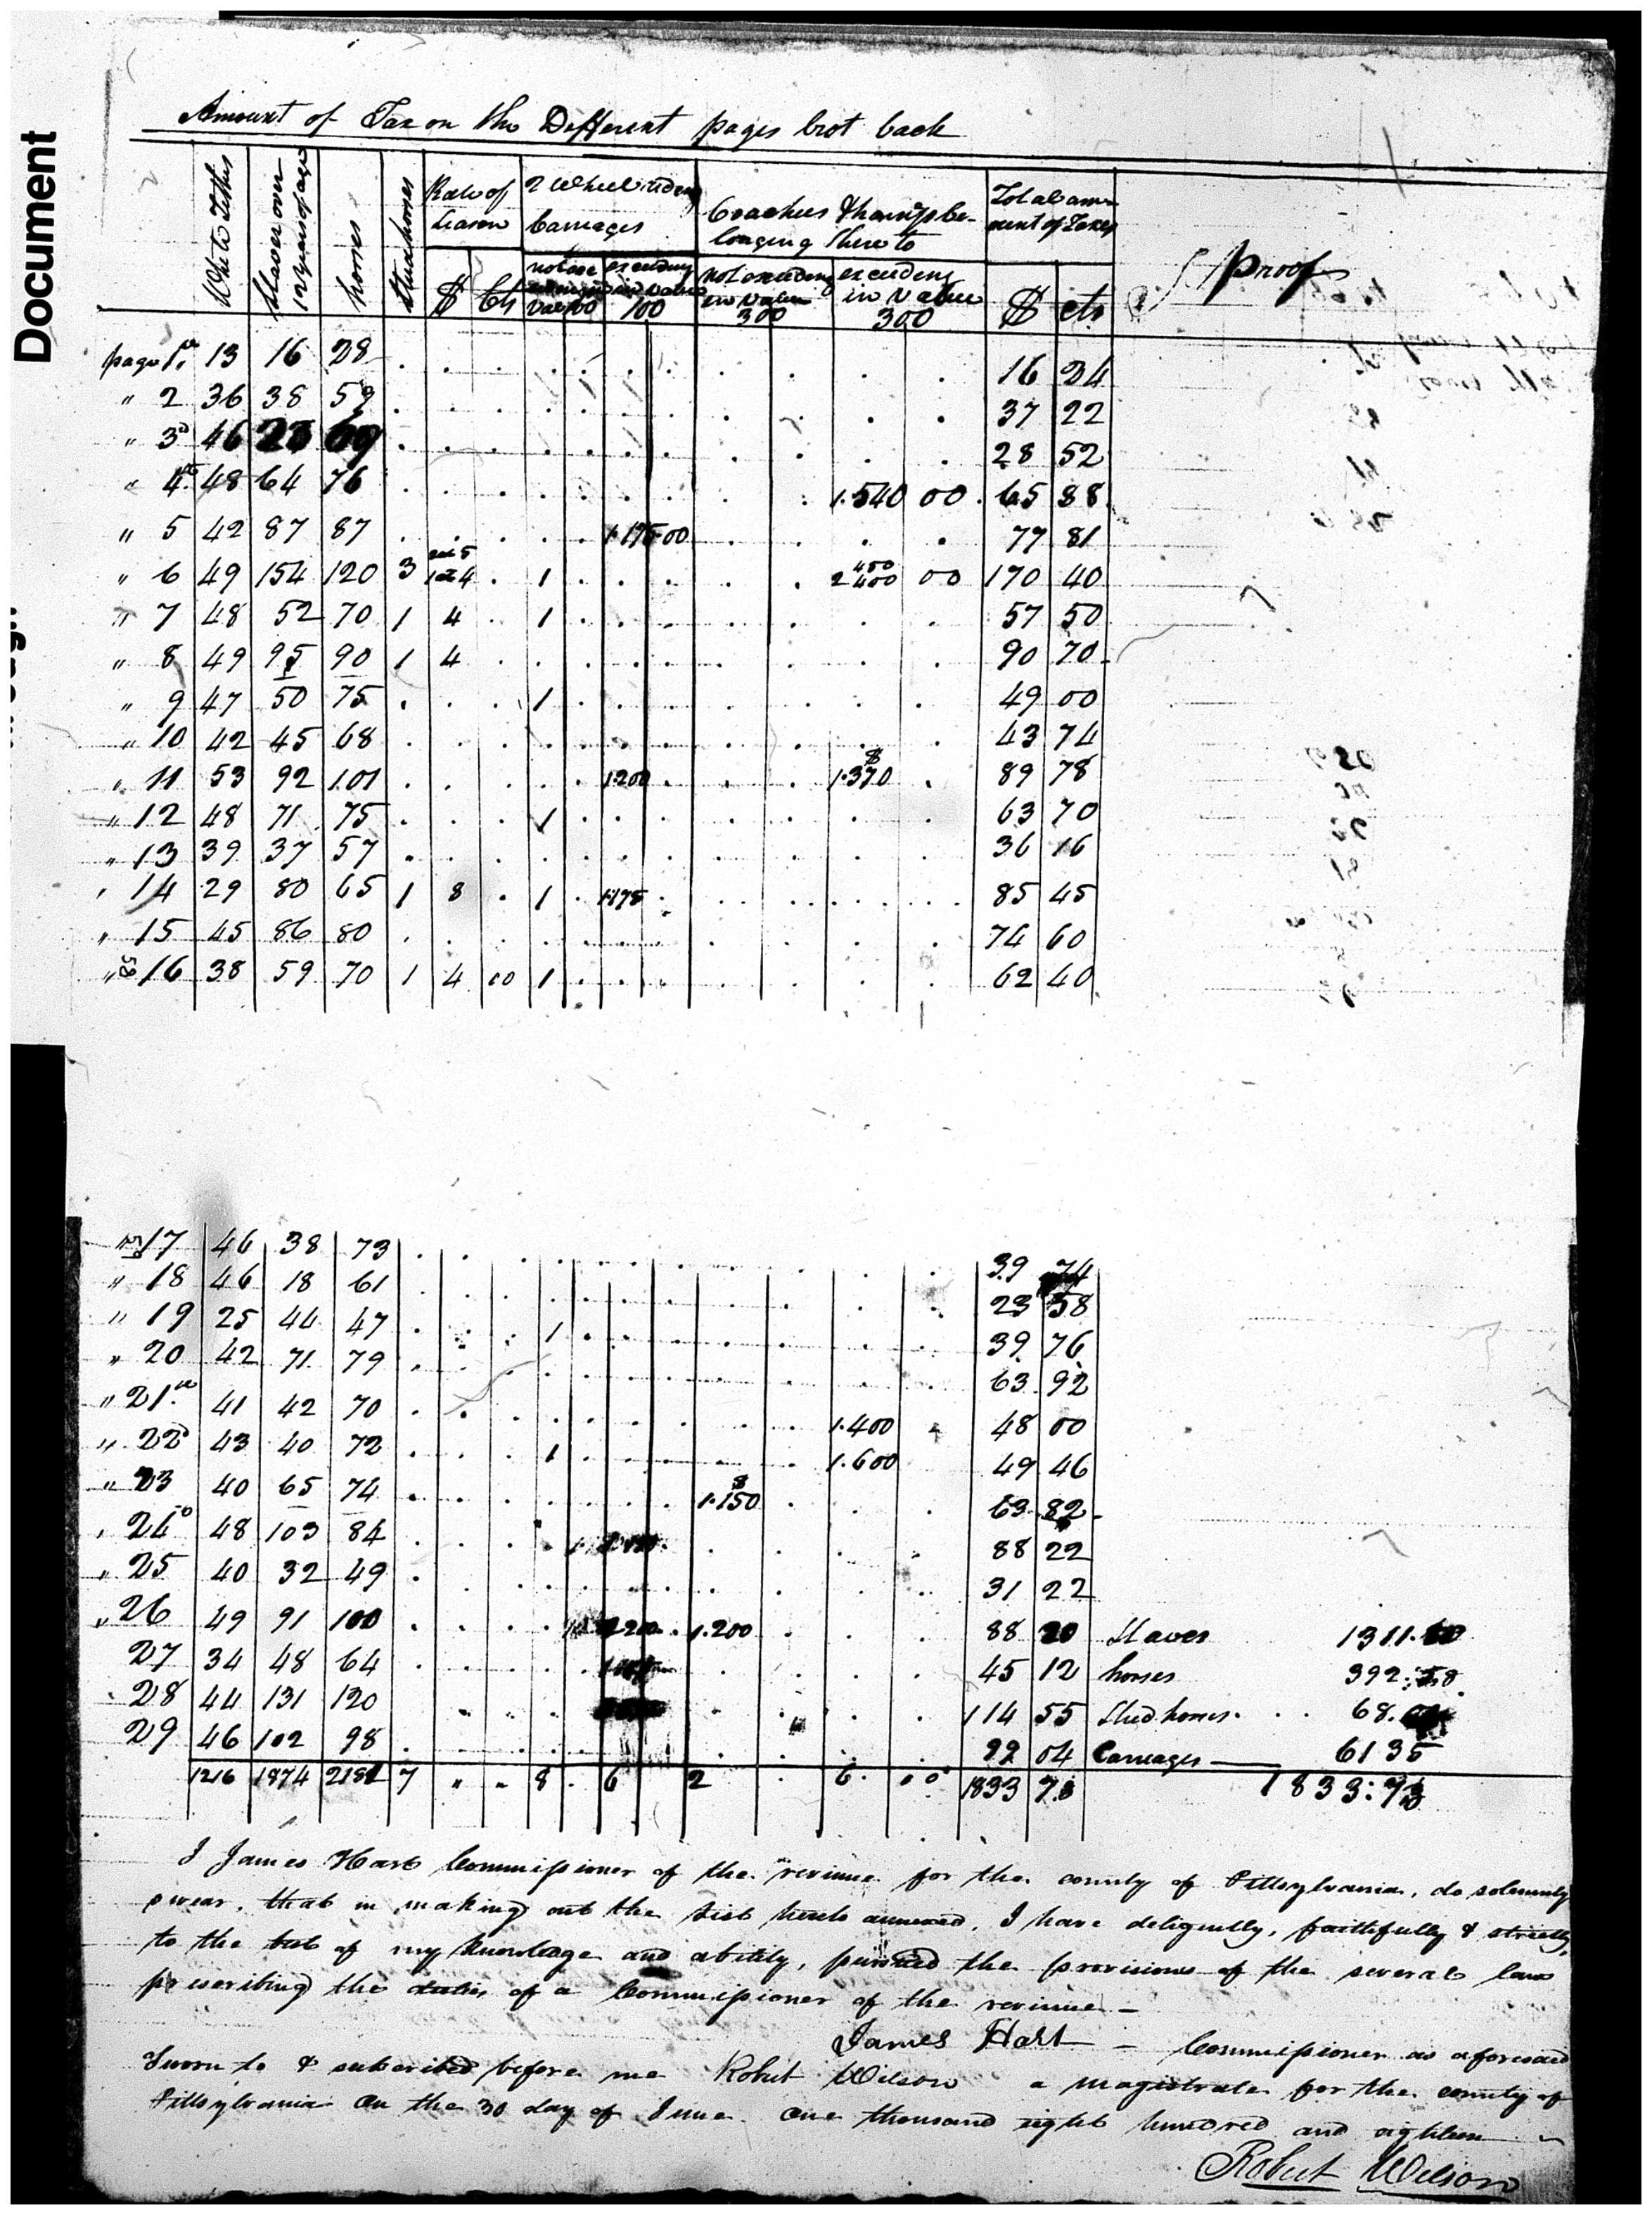 Document
Amount of Tax on the Different pages brot back
White Tithes
Slaves over 12 years of age
horses
Studhorses
Rate of Season
2 Wheel riding Carriages
Coaches & harness belonging there to
Total amount of Taxes
Proof
$ Cts
100
exceeding in value 100
not exceeding in value 300
exceeding in value 300
$ cts
page 1st 13 16 28 16 24
" 2 36 38 59 37 22
" 3d 46 28 52
" 4th 48 64 76 1.540 00 65 88
" 5 42 87 87 1.175.00 77 81
" 6 49 154 120 3 1 450 2 400 00 170 40
" 7 48 52 70 1 4 1 57 50
" 8 49 95 90 1 4 90 70
" 9 47 50 75 1 49 00
" 10 42 45 68 43 74
" 11 53 92 101 1.200 $ 1.370 89 78
" 12 48 71 75 1 63 70
" 13 39 37 57 36 16
" 14 29 80 65 1 8 1 1.175 85 45
" 15 45 86 80 74 60
" 16 38 59 70 1 4 00 1 62 40
" 17 46 38 73 39 74
" 18 46 18 61 23 58
" 19 25 44 47 1 39 76
" 20 42 71 79 63 92
" 21st 41 42 70 1.400 48 00
" 22d 43 40 72 1 1.600 49 46
" 23 40 65 74 $ 1.150 63 82
" 24 48 103 84 88 22
" 25 40 32 49 31 22
" 26 49 91 100 1.200 88 20 Slaves 1311.
27 34 48 64 45 12 horses 392
" 28 44 131 120 114 55 Stud horses 68.
29 46 102 98 04 Carriages 61 35
1216 1874 7 " " 8 6 2 6 1833 1833:
I James Hart Commissioner of the revinue for the county of Pittsylvania, do solemnly
swear, that in making out the list annexed, I have deligently, faithfully & strictly,
to the best of my knowledge and ability, pursued the provisions of the several laws
prescribing the duties of a Commissioner of the revinue —
James Hart — Commissioner as aforesaid
Sworn to & subscribed before me Robert Wilson a magistrate for the county of
Pittsylvania on the 30 day of June one thousand eight hundred and eighteen
Robert Wilson